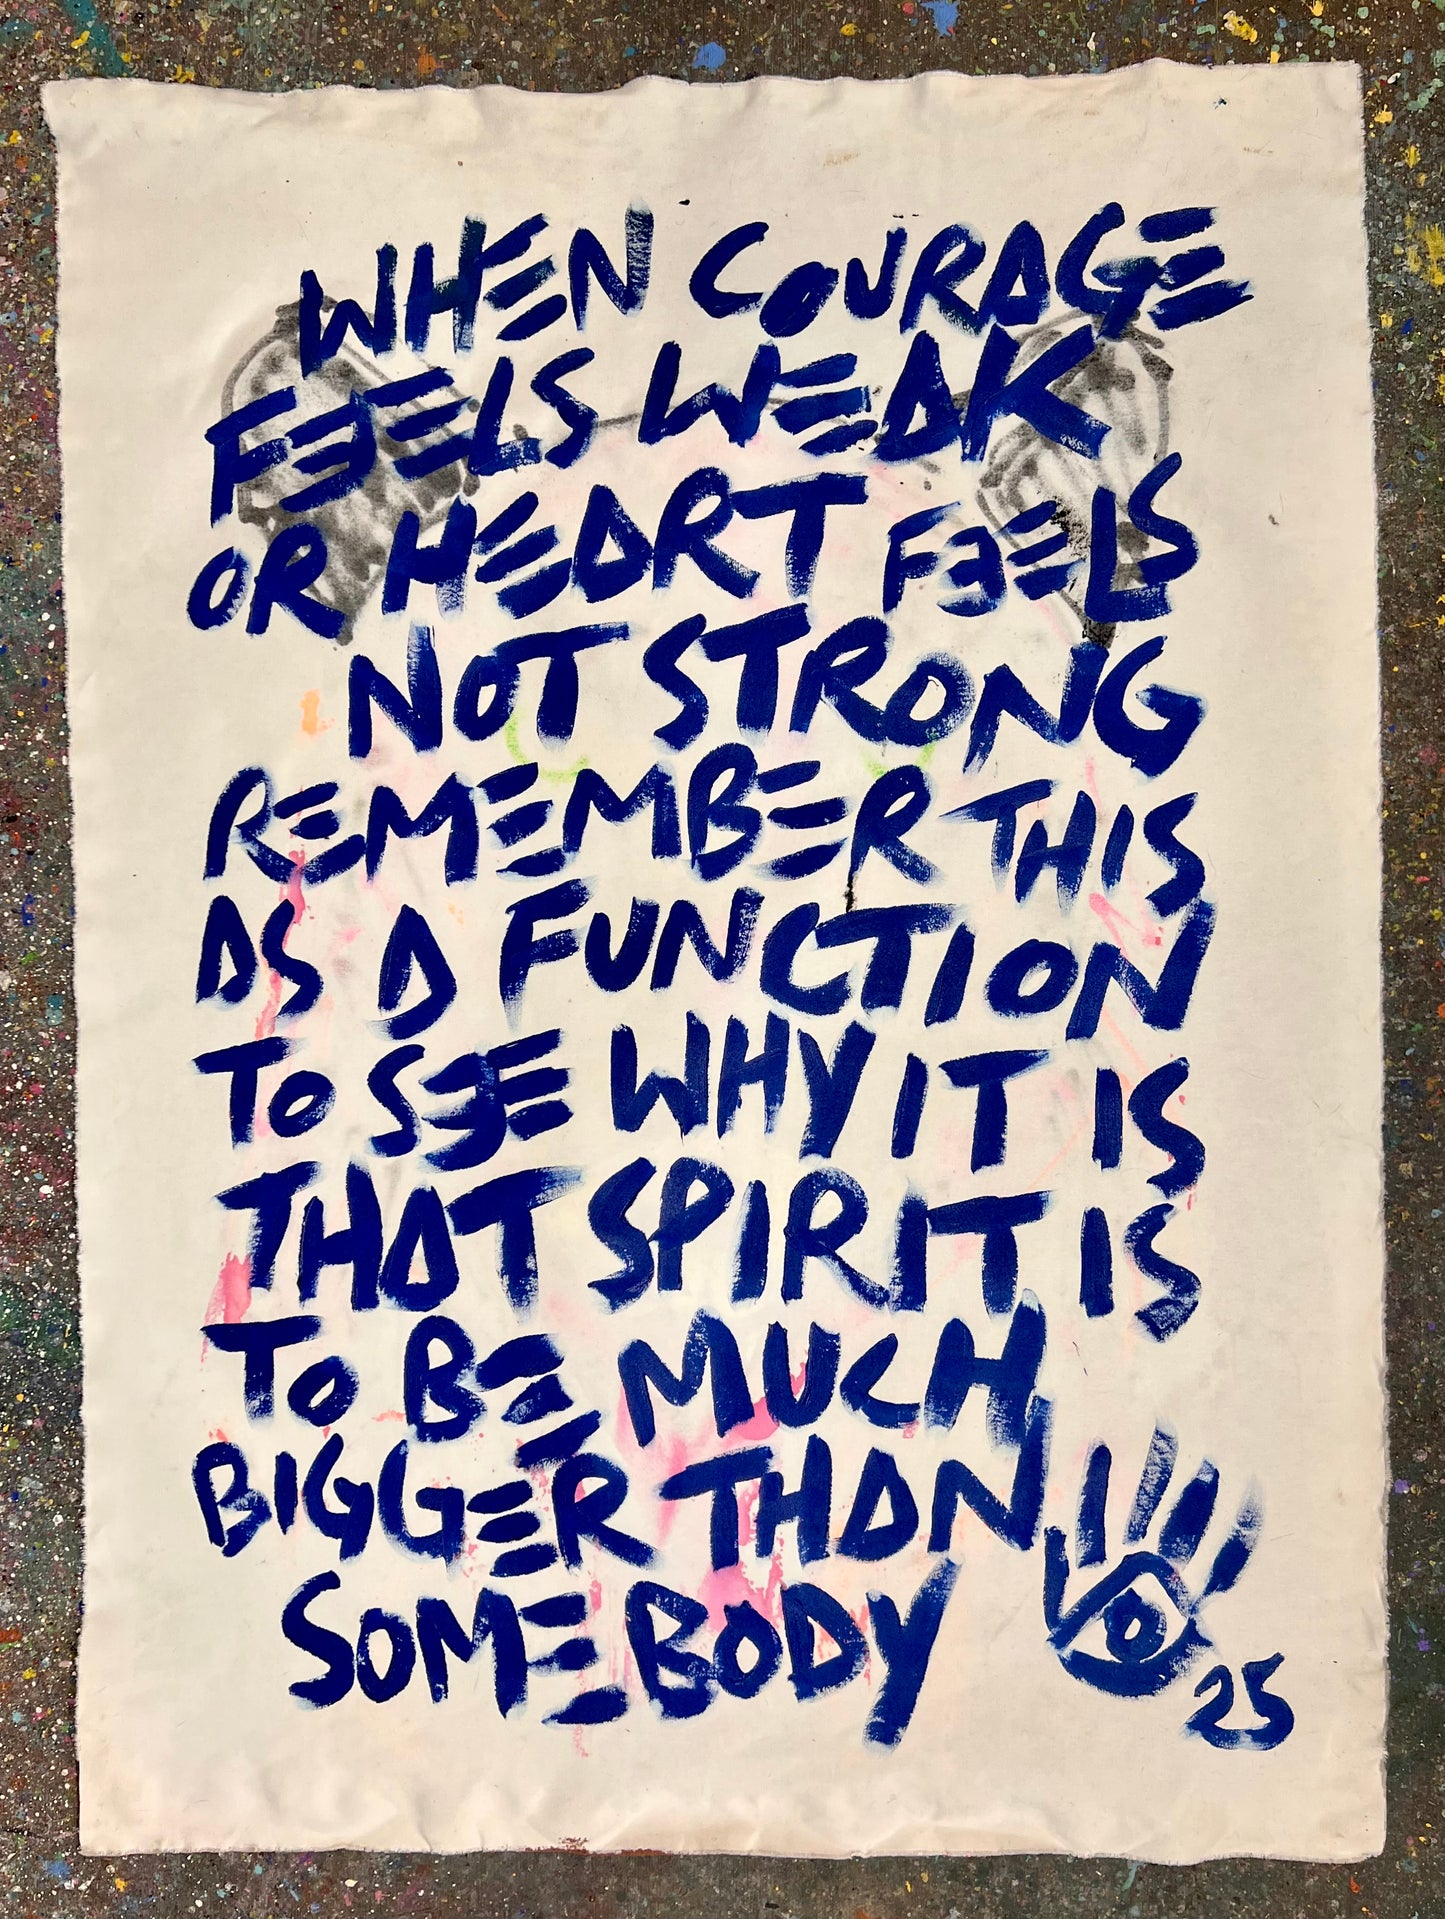 WHEN COURAGE
FEELS WEAK
OR HEART FEELS
NOT STRONG
REMEMBER THIS
AS A FUNCTION
TO SEE WHY IT IS
THAT SPIRIT IS
TO BE MUCH
BIGGER THAN
SOMEBODY
25